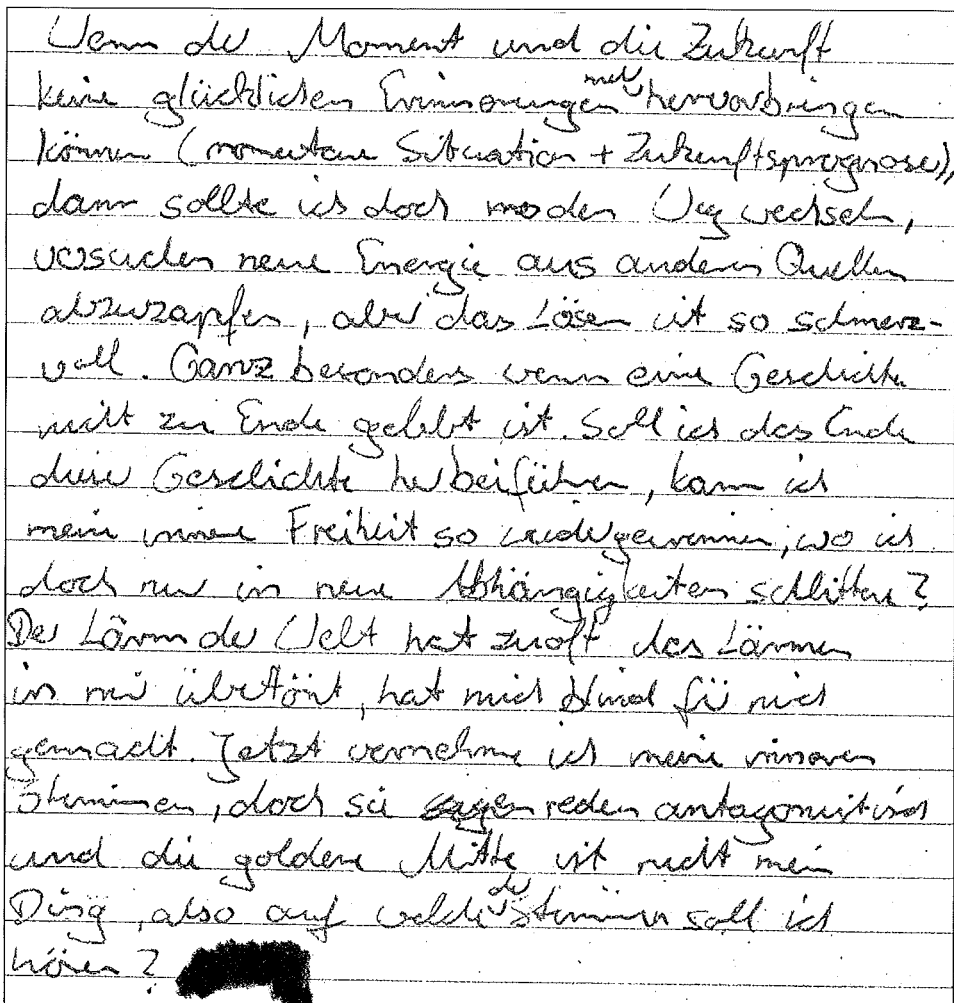 Wenn der Moment und die Zukunft
keine glücklichen Erinnerungen mehr hervorbringen
können (momentane Situation + Zukunftsprognose),
dann sollte ich doch den Weg wechseln,
versuchen neue Energie aus anderen Quellen
abzuzapfen, aber das Lösen ist so schmerz-
voll. Ganz besonders wenn eine Geschichte
nicht zu Ende gelebt ist. Soll ich das Ende
dieser Geschichte herbeiführen, kann ich
meine innere Freiheit so wiedergewinnen, wo ich
doch nur in neue Abhängigkeiten schlittere?
Der Lärm der Welt hat zu oft das Lärmen
in mir übertönt, hat mich blind für mich
gemacht. Jetzt vernehme ich meine inneren
Stimmen, doch sie reden antagonistisch
und die goldene Mitte ist nicht mein
Ding, also auf welche der Stimmen soll ich
hören?